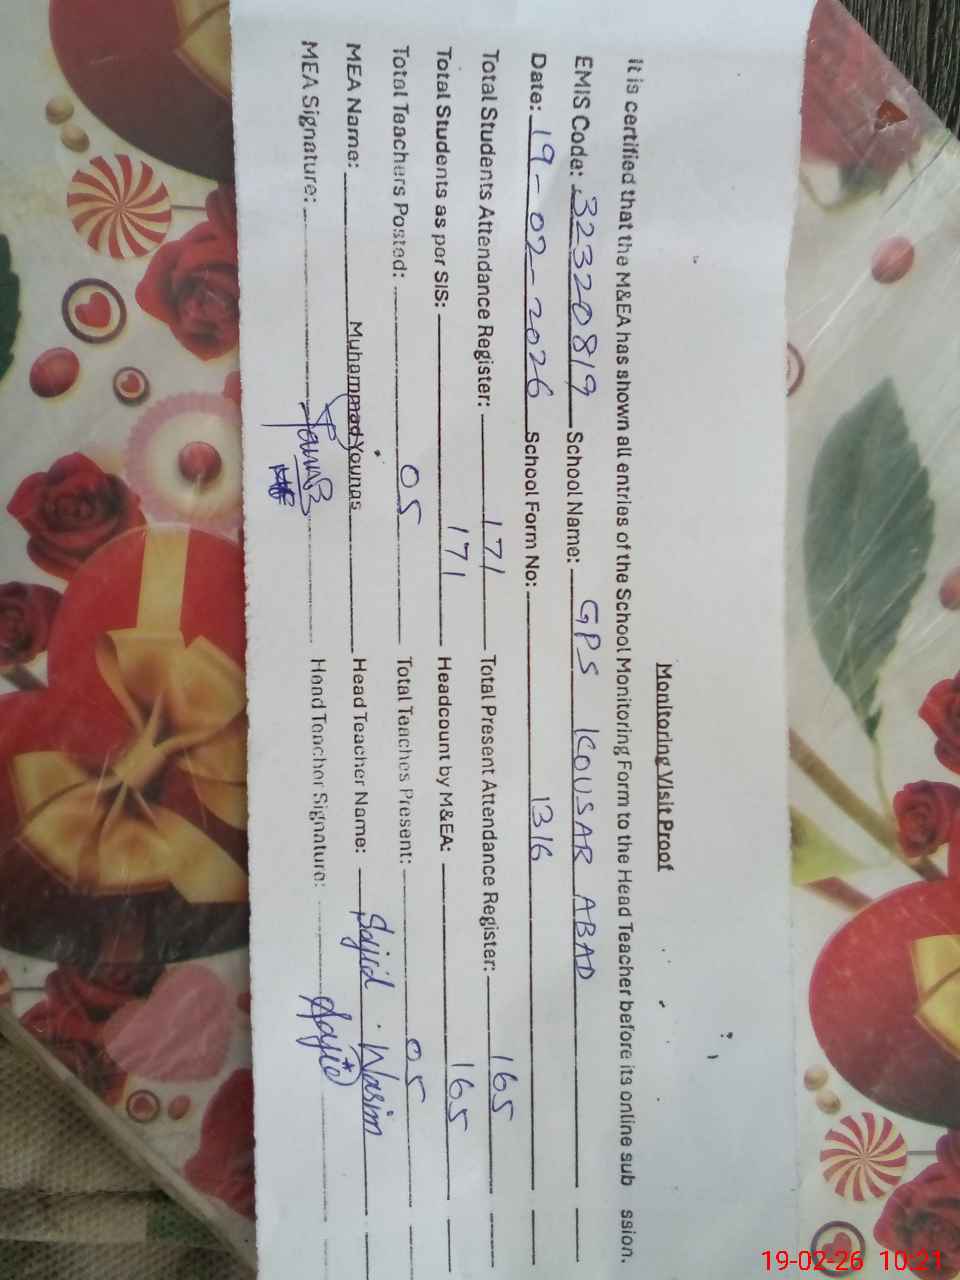 Monitoring Visit Proof
It is certified that the M&EA has shown all entries of the School Monitoring Form to the Head Teacher before its online sub ssion.
EMIS Code: 32320819 School Name: GPS KOUSAR ABAD
Date: 19-02-2026 School Form No: 1316
Total Students Attendance Register: 171 Total Present Attendance Register: 165
Total Students as per SIS: 171 Headcount by M&EA: 165
Total Teachers Posted: 05 Total Teaches Present: 05
MEA Name: Muhammad Younas Head Teacher Name: Sajid. Wasim
MEA Signature: Head Teacher Signature: Sajid
19-02-26 10:21